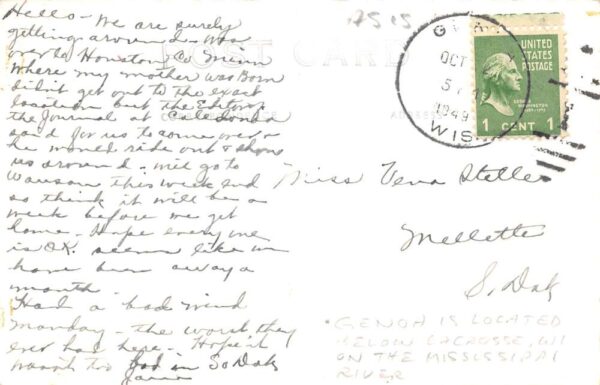 Hello - We are surely
getting around - Was
over to Houston, Co Minn
where my mother was Born
didn't get out to the exact
location but the Editor of
the Journal at Caledonia
said for us to come over &
he would ride out & show
us around - will go to
Wausau this week end
so think it will be a
week before we get
home - Hope everyone
is O.K. seems like we
have been away a
month
Had a bad wind
Monday - the worst they
ever had here - Hope it
wasn't too bad in So Dak
POST CARD
OCT
5
1949
WIS.
UNITED
STATES
POSTAGE
GEORGE
WASHINGTON
1 CENT 1
Miss Vena Steller
Mellette
S. Dak
GENOA IS LOCATED
BELOW LACROSSE, WI
ON THE MISSISSIPPI
RIVER